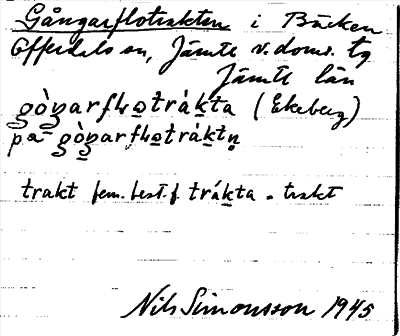 Gångarflotrakten i Bäcken
Offerdals sn, Jämte v. doms. tg
Jämte län
gògarfłotrákta (Ekeberg)
på gògarfłotráktn̥
trakt fem. best. f. trákta = trakt
Nils Simonsson 1945